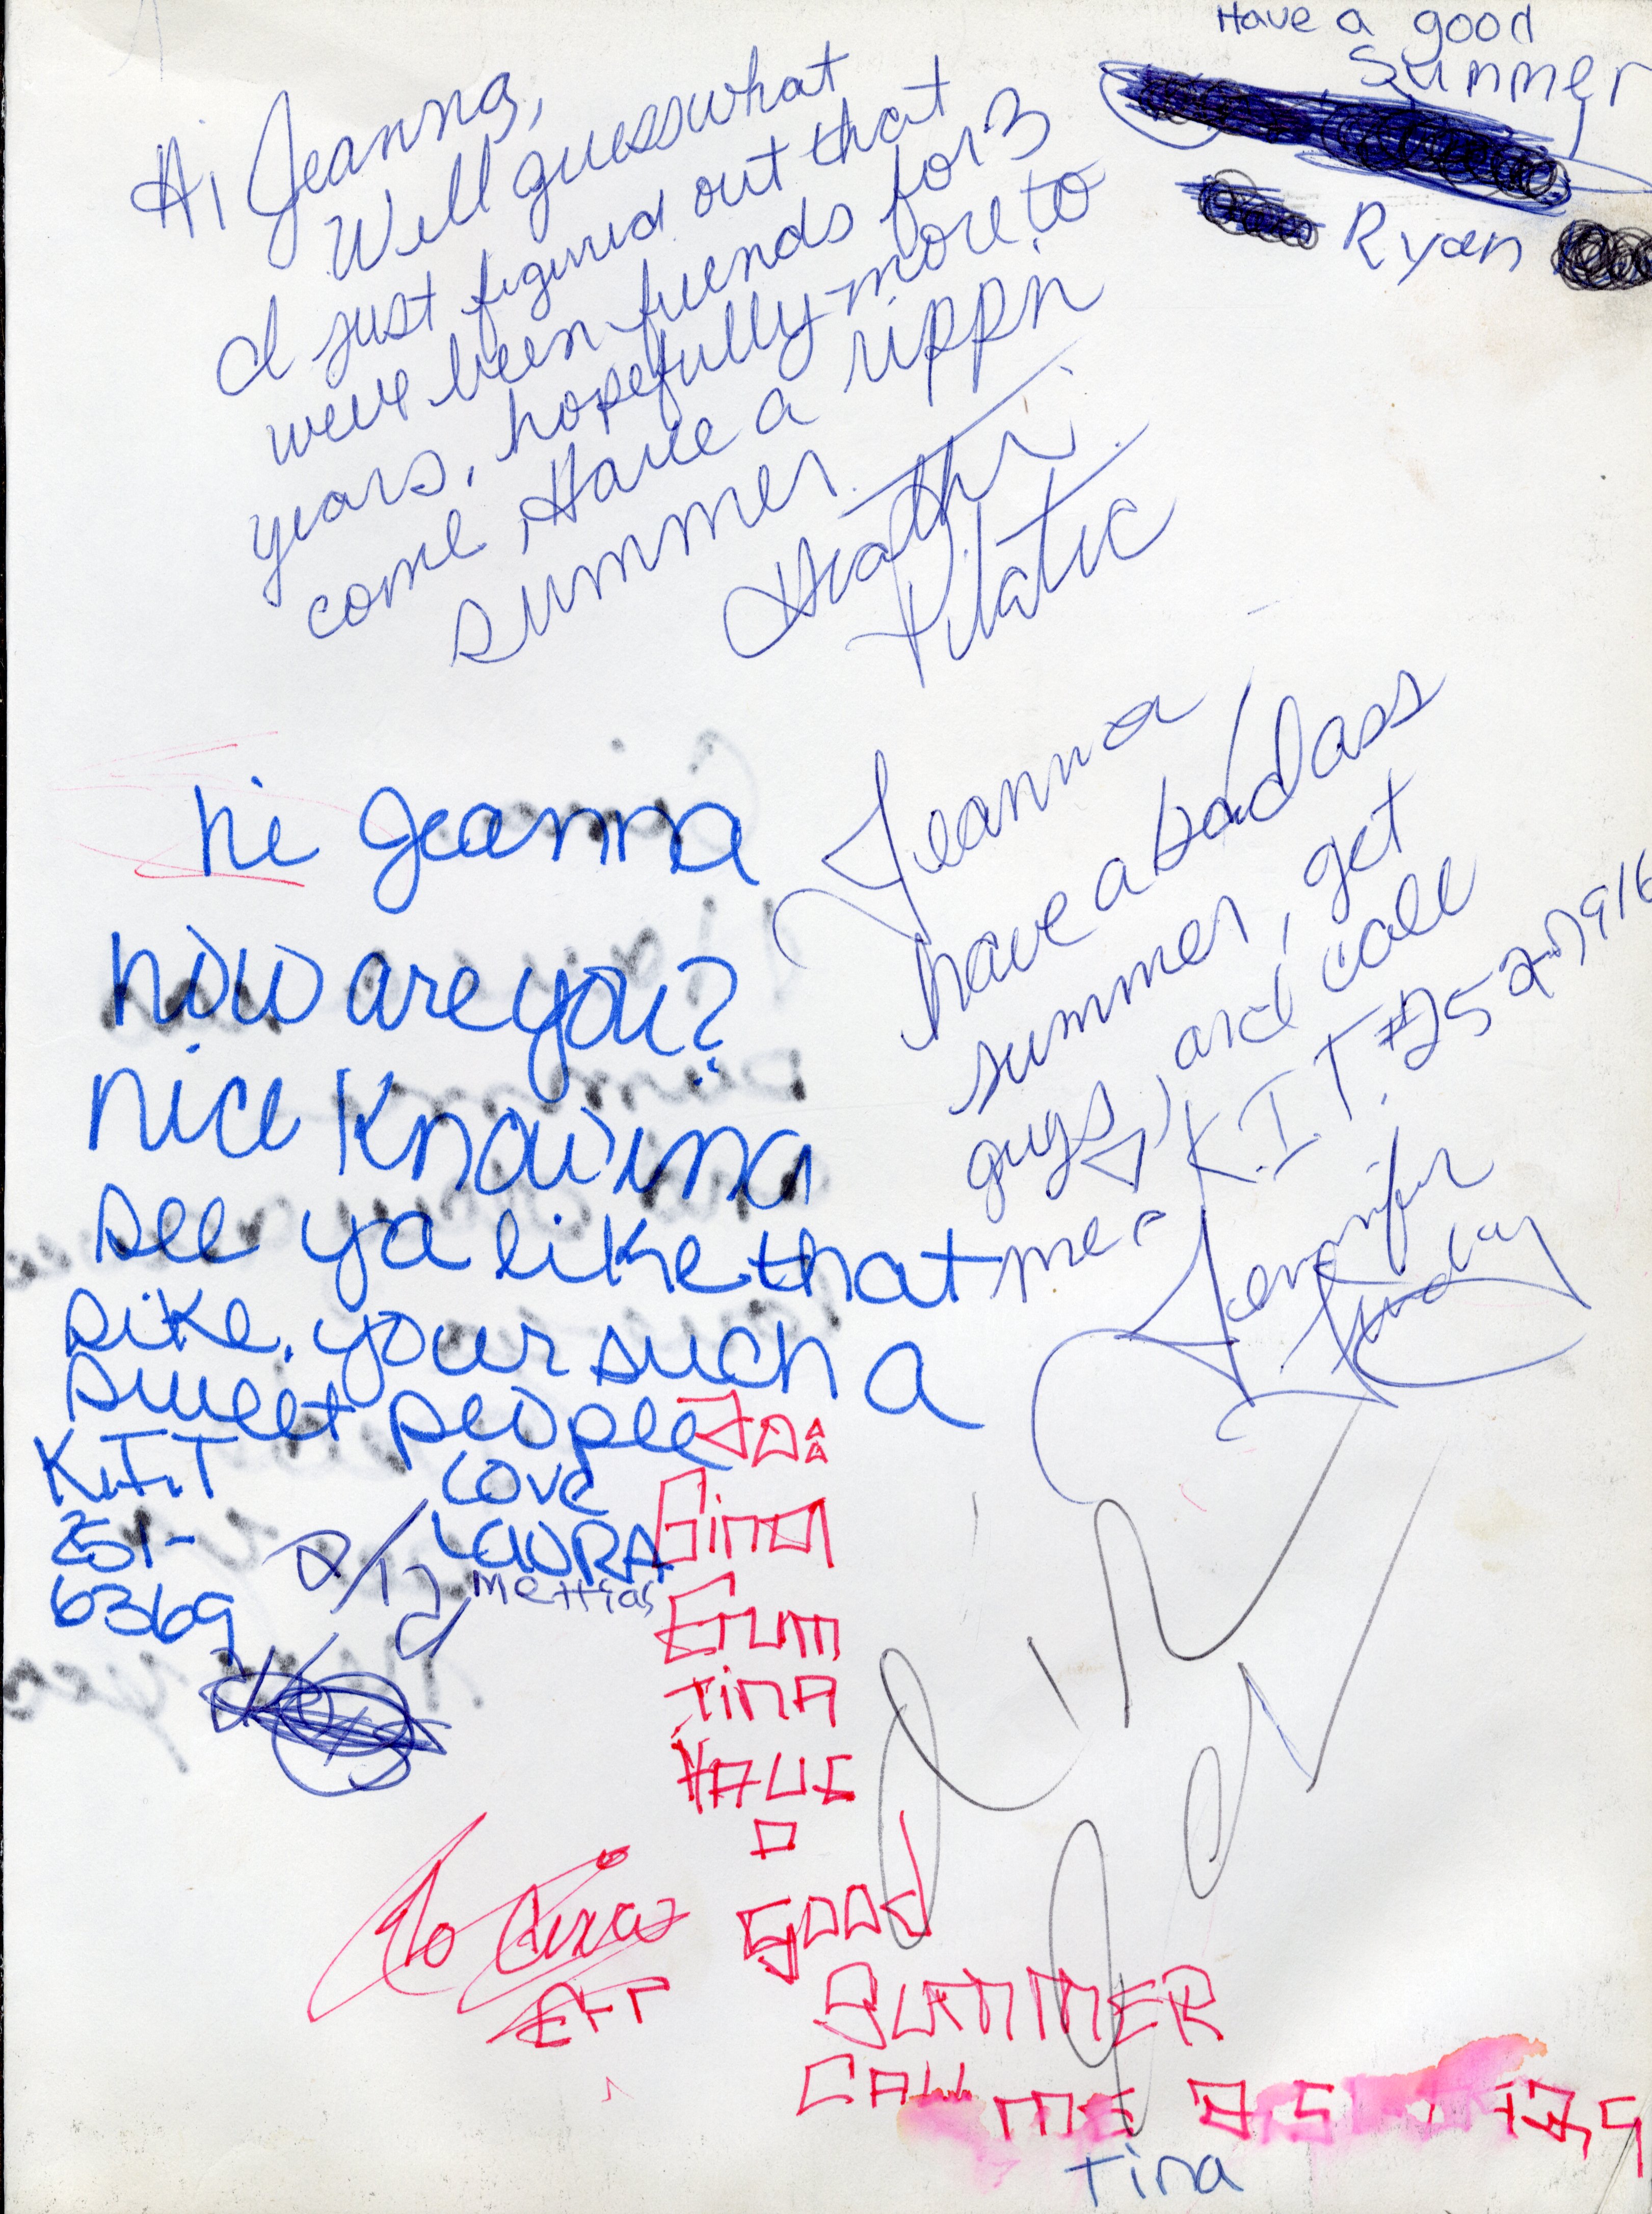 Have a good
Summer
Ryan
Hi Jeanna,
Well guess what
I just figured out that
weve been friends for 3
years, hopefully more to
come, Have a rippn
summer.
Heathr.
Pilatic
Jeanna
have a badass
summer, get
guys, and call
me. K.I.T. #252-7916
Jennifer
hi Jeanna
how are you?
nice Knowina
see ya like that
sike. your such a
sweet people
K.I.T
251-
6369
Love
LAURA
Mettias
To:
Gina
Erum
TinA
HAVE
a
good
SUMMER
CALL ME
Tina
To Gina